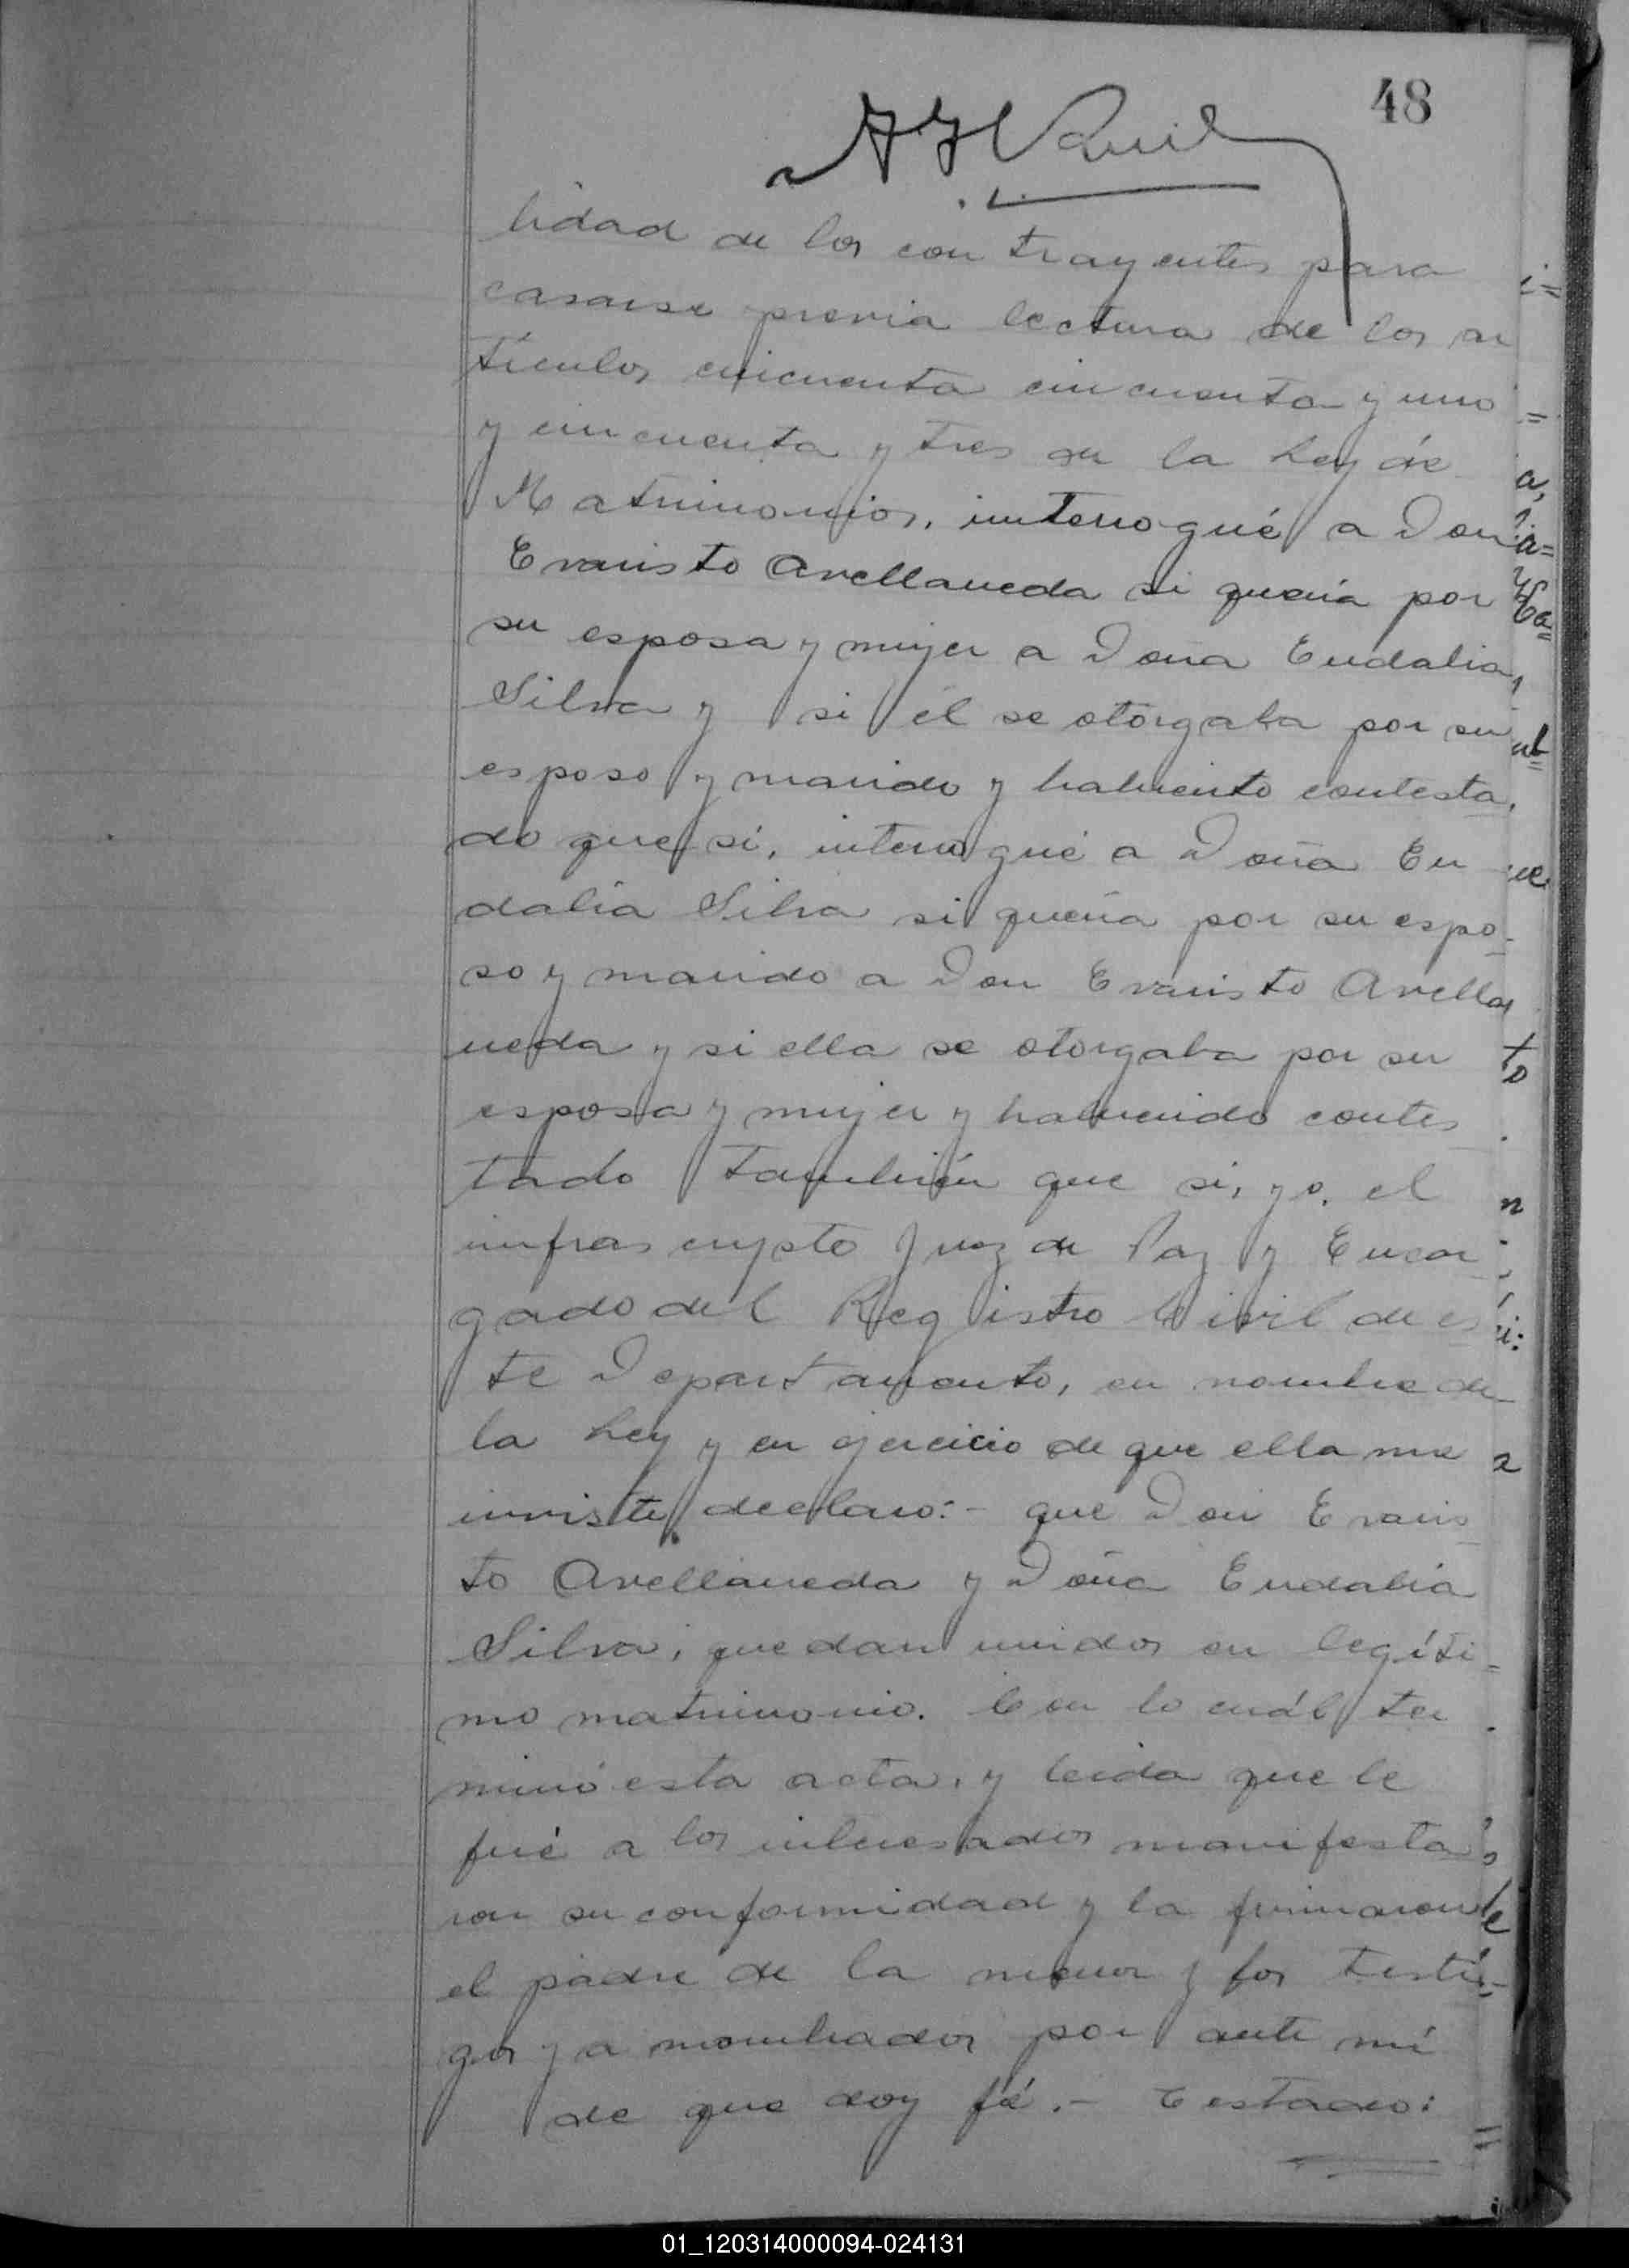 48
lidad de los contrayentes para
casarse previa lectura de los ar
tículos cincuenta cincuenta y uno
y cincuenta y tres de la Ley de
Matrimonios, interrogué a Don
Evaristo Avellaneda si quería por
su esposa y mujer a Doña Eudalia
Silva y si él se otorgaba por su
esposo y marido y habiento contesta
do que si, interrogué a Doña Eu
dalia Silva si quería por su espo-
so y marido a Don Evaristo Avella
neda y si ella se otorgaba por su
esposa y mujer y habiendo contes
tado también que si, yo, el
infrascrypto Juez de Paz y Encar
gado del Registro Civil de es
te Departamento, en nombre de
la Ley y en ejercicio de que ella me
inviste, declaro:- que Don Evaris
to Avellaneda y Doña Eudalia
Silva, quedan unidos en legíti-
mo matrimonio. Con lo cuál ter
minó esta acta, y leida que le
fué a los interesados manifesta
ron su conformidad y la firmaron
el padre de la menor y los testi-
gos ya nombrados por ante mí
de que doy fé.- Testado:
01_120314000094-024131